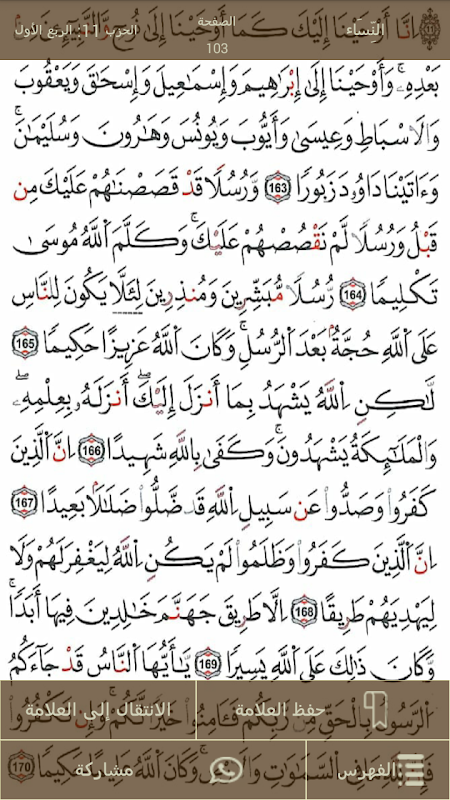 النّسآء
الصفحة
103
الحزب 11, الربع الأول
اِنَّآ أَوْحَيْنَآ إِلَيْكَ كَمَآ أَوْحَيْنَآ إِلَىٰ نُوحٍ وَالنَّبِيٓـِٕينَ مِنۢ
بَعْدِهِۦۚ وَأَوْحَيْنَآ إِلَىٰٓ إِبْرَٰهِيمَ وَإِسْمَٰعِيلَ وَإِسْحَٰقَ وَيَعْقُوبَ
وَالَاسْبَاطِ وَعِيسَىٰ وَأَيُّوبَ وَيُونُسَ وَهَٰرُونَ وَسُلَيْمَٰنَۚ
وَءَاتَيْنَا دَاوُۥدَ زَبُورًا 163 وَرُسُلًا قَدْ قَصَصْنَٰهُمْ عَلَيْكَ مِن
قَبْلُ وَرُسُلًا لَّمْ نَقْصُصْهُمْ عَلَيْكَۚ وَكَلَّمَ اَللَّهُ مُوسَىٰ
تَكْلِيمًا 164 رُّسُلًا مُّبَشِّرِينَ وَمُنذِرِينَ لِئَلَّا يَكُونَ لِلنَّاسِ
عَلَى اَللَّهِ حُجَّةٌۢ بَعْدَ اَلرُّسُلِۚ وَكَانَ اَللَّهُ عَزِيزًا حَكِيمًا 165
لَّٰكِنِ اِللَّهُ يَشْهَدُ بِمَآ أَنزَلَ إِلَيْكَۖ أَنزَلَهُۥ بِعِلْمِهِۦۖ
وَالْمَلَٰٓئِكَةُ يَشْهَدُونَۚ وَكَفَىٰ بِاللَّهِ شَهِيدًا 166 اِنَّ اَلَّذِينَ
كَفَرُوا۟ وَصَدُّوا۟ عَن سَبِيلِ اِللَّهِ قَد ضَّلُّوا۟ ضَلَٰلًۢا بَعِيدًا 167
اِنَّ اَلَّذِينَ كَفَرُوا۟ وَظَلَمُوا۟ لَمْ يَكُنِ اِللَّهُ لِيَغْفِرَ لَهُمْ وَلَا
لِيَهْدِيَهُمْ طَرِيقًا 168 اِلَّا طَرِيقَ جَهَنَّمَ خَٰلِدِينَ فِيهَآ أَبَدًاۚ
وَكَانَ ذَٰلِكَ عَلَى اَللَّهِ يَسِيرًا 169 يَٰٓأَيُّهَا اَلنَّاسُ قَدْ جَآءَكُمُ
اُلرَّسُولُ بِالْحَقِّ مِن رَّبِّكُمْ فَـَٔامِنُوا۟ خَيْرًا لَّكُمْۚ وَإِن تَكْفُرُوا۟
حفظ العلامة
الانتقال إلى العلامة
فَإِنَّ لِلهِ مَا فِي اِلسَّمَٰوَٰتِ وَالَارْضِۚ وَكَانَ اَللَّهُ عَلِيمًا حَكِيمًا 170
الفهرس
مشاركة